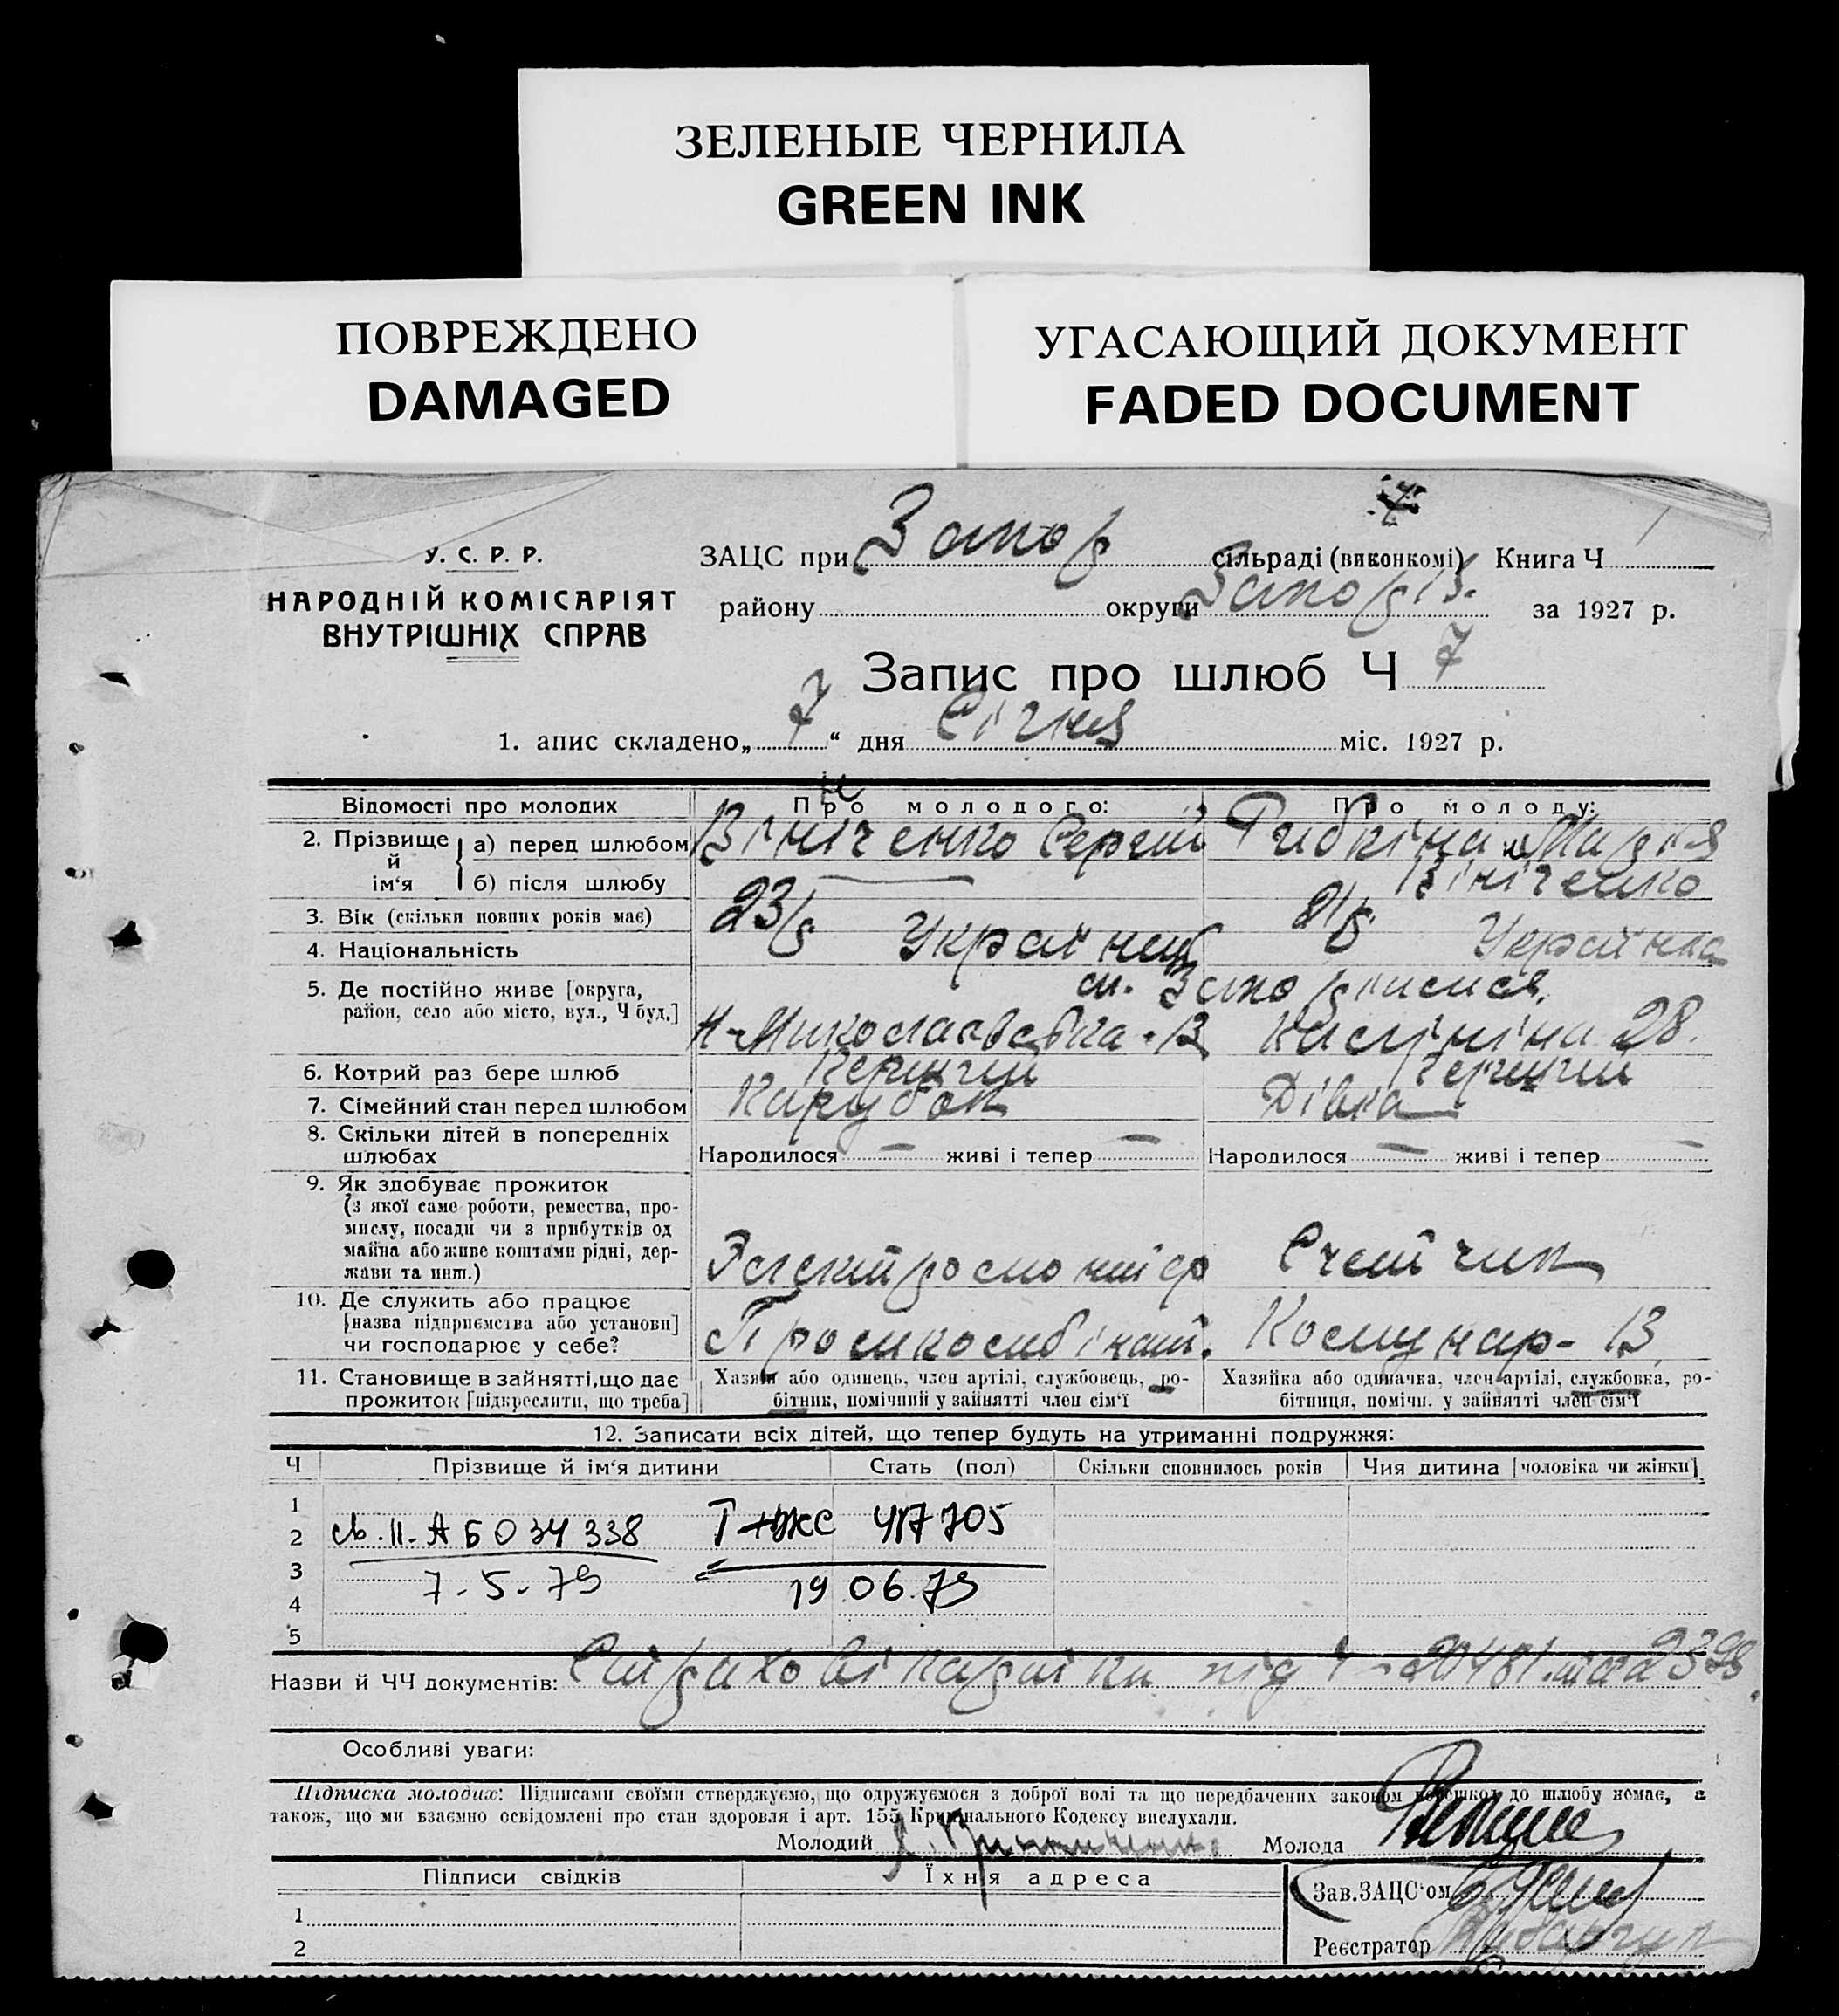 ЗЕЛЕНЫЕ ЧЕРНИЛА
GREEN INK
ПОВРЕЖДЕНО
DAMAGED
УГАСАЮЩИЙ ДОКУМЕНТ
FADED DOCUMENT
У. С. Р. Р.
НАРОДНІЙ КОМІСАРІЯТ
ВНУТРІШНІХ СПРАВ
ЗАЦС при Запор сільраді (виконкомі) Книга Ч
району округи Запоріз. за 1927 р.
Запис про шлюб Ч 7
1. апис складено „ 7 “ дня Січня міс. 1927 р.
Відомості про молодих Про молодого: Про молоду:
2. Прізвище й ім‘я
а) перед шлюбом Вініченко Сергій Рибкіна Марія
б) після шлюбу — Вініченко
3. Вік (скільки повних років має) 23 р
4. Національність Українець Українка
5. Де постійно живе [округа, район, село або місто, вул., Ч буд.]
м. Запоріжжя
Н-Миколаївська - 13 28.
6. Котрий раз бере шлюб Перший Перший
7. Сімейний стан перед шлюбом Парубок Дівка
8. Скільки дітей в попередніх шлюбах
Народилося — живі і тепер — Народилося — живі і тепер —
9. Як здобуває прожиток
(з якої саме роботи, ремества, про-
мислу, посади чи з прибутків од
майна або живе коштами рідні, дер-
жави та инш.)
Електромонтіор Счетчик
10. Де служить або працює
[назва підприємства або установи]
чи господарює у себе?
Промкомбінат. Комунар-13
11. Становище в зайнятті, що дає
прожиток [підкреслити, що треба]
Хазяїн або одинець, член артілі, службовець, ро-
бітник, помічний у зайнятті член сім‘ї
Хазяйка або одиначка, член артілі, службовка, ро-
бітниця, помічн. у зайнятті член сім‘ї
12. Записати всіх дітей, що тепер будуть на утриманні подружжя:
Ч Прізвище й ім‘я дитини Стать (пол) Скільки сповнилось років Чия дитина [чоловіка чи жінки]
1
2 II-АБ 034338 І-ЖС 417705
3
7-5-79 19.06.79
4
5
Назви й ЧЧ документів: Страхові картки під Ч - 20481 та
Особливі уваги:
Підписка молодих: Підписами своїми стверджуємо, що одружуємося з доброї волі та що передбачених законом перешкод до шлюбу немає, а
також, що ми взаємно освідомлені про стан здоровля і арт. 155 Кримінального Кодексу вислухали.
Молодий Молода
Підписи свідків Їхня адреса Зав. ЗАЦС‘ом
1
2 Реєстратор